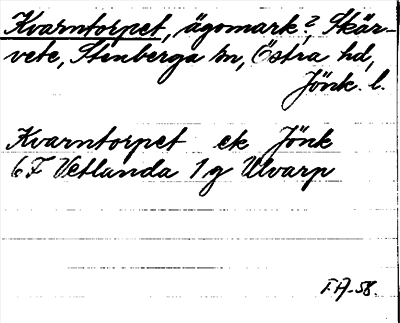 Kvarntorpet, ägomark? Skär-
vete, Stenberga sn, Östra hd,
Jönk. l.
Kvarntorpet ek Jönk
6F Vetlanda 1g Ulvarp
F.A.-58.